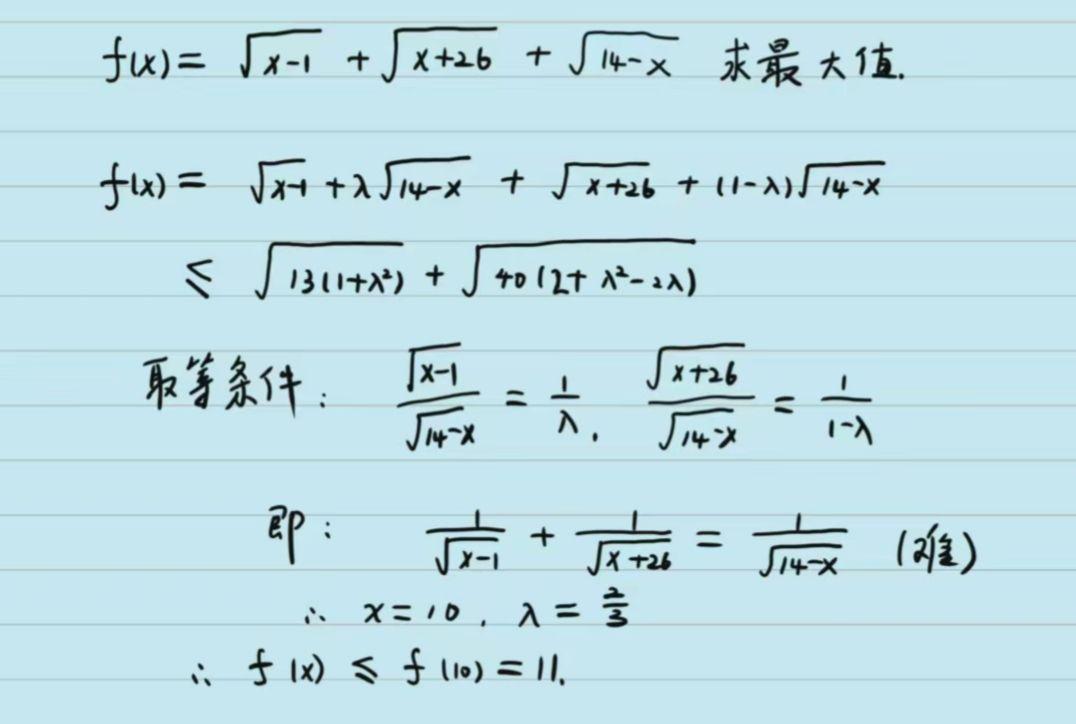 f(x) = √(x-1) + √(x+26) + √(14-x) 求最大值.
f(x) = √(x-1) + λ√(14-x) + √(x+26) + (1-λ)√(14-x)
≤ √(13(1+λ²)) + √(40(2+λ²-2λ))
取等条件: √(x-1)/√(14-x) = 1/λ, √(x+26)/√(14-x) = 1/(1-λ)
即: 1/√(x-1) + 1/√(x+26) = 1/√(14-x) (难)
∴ x=10, λ=2/3
∴ f(x) ≤ f(10) = 11.